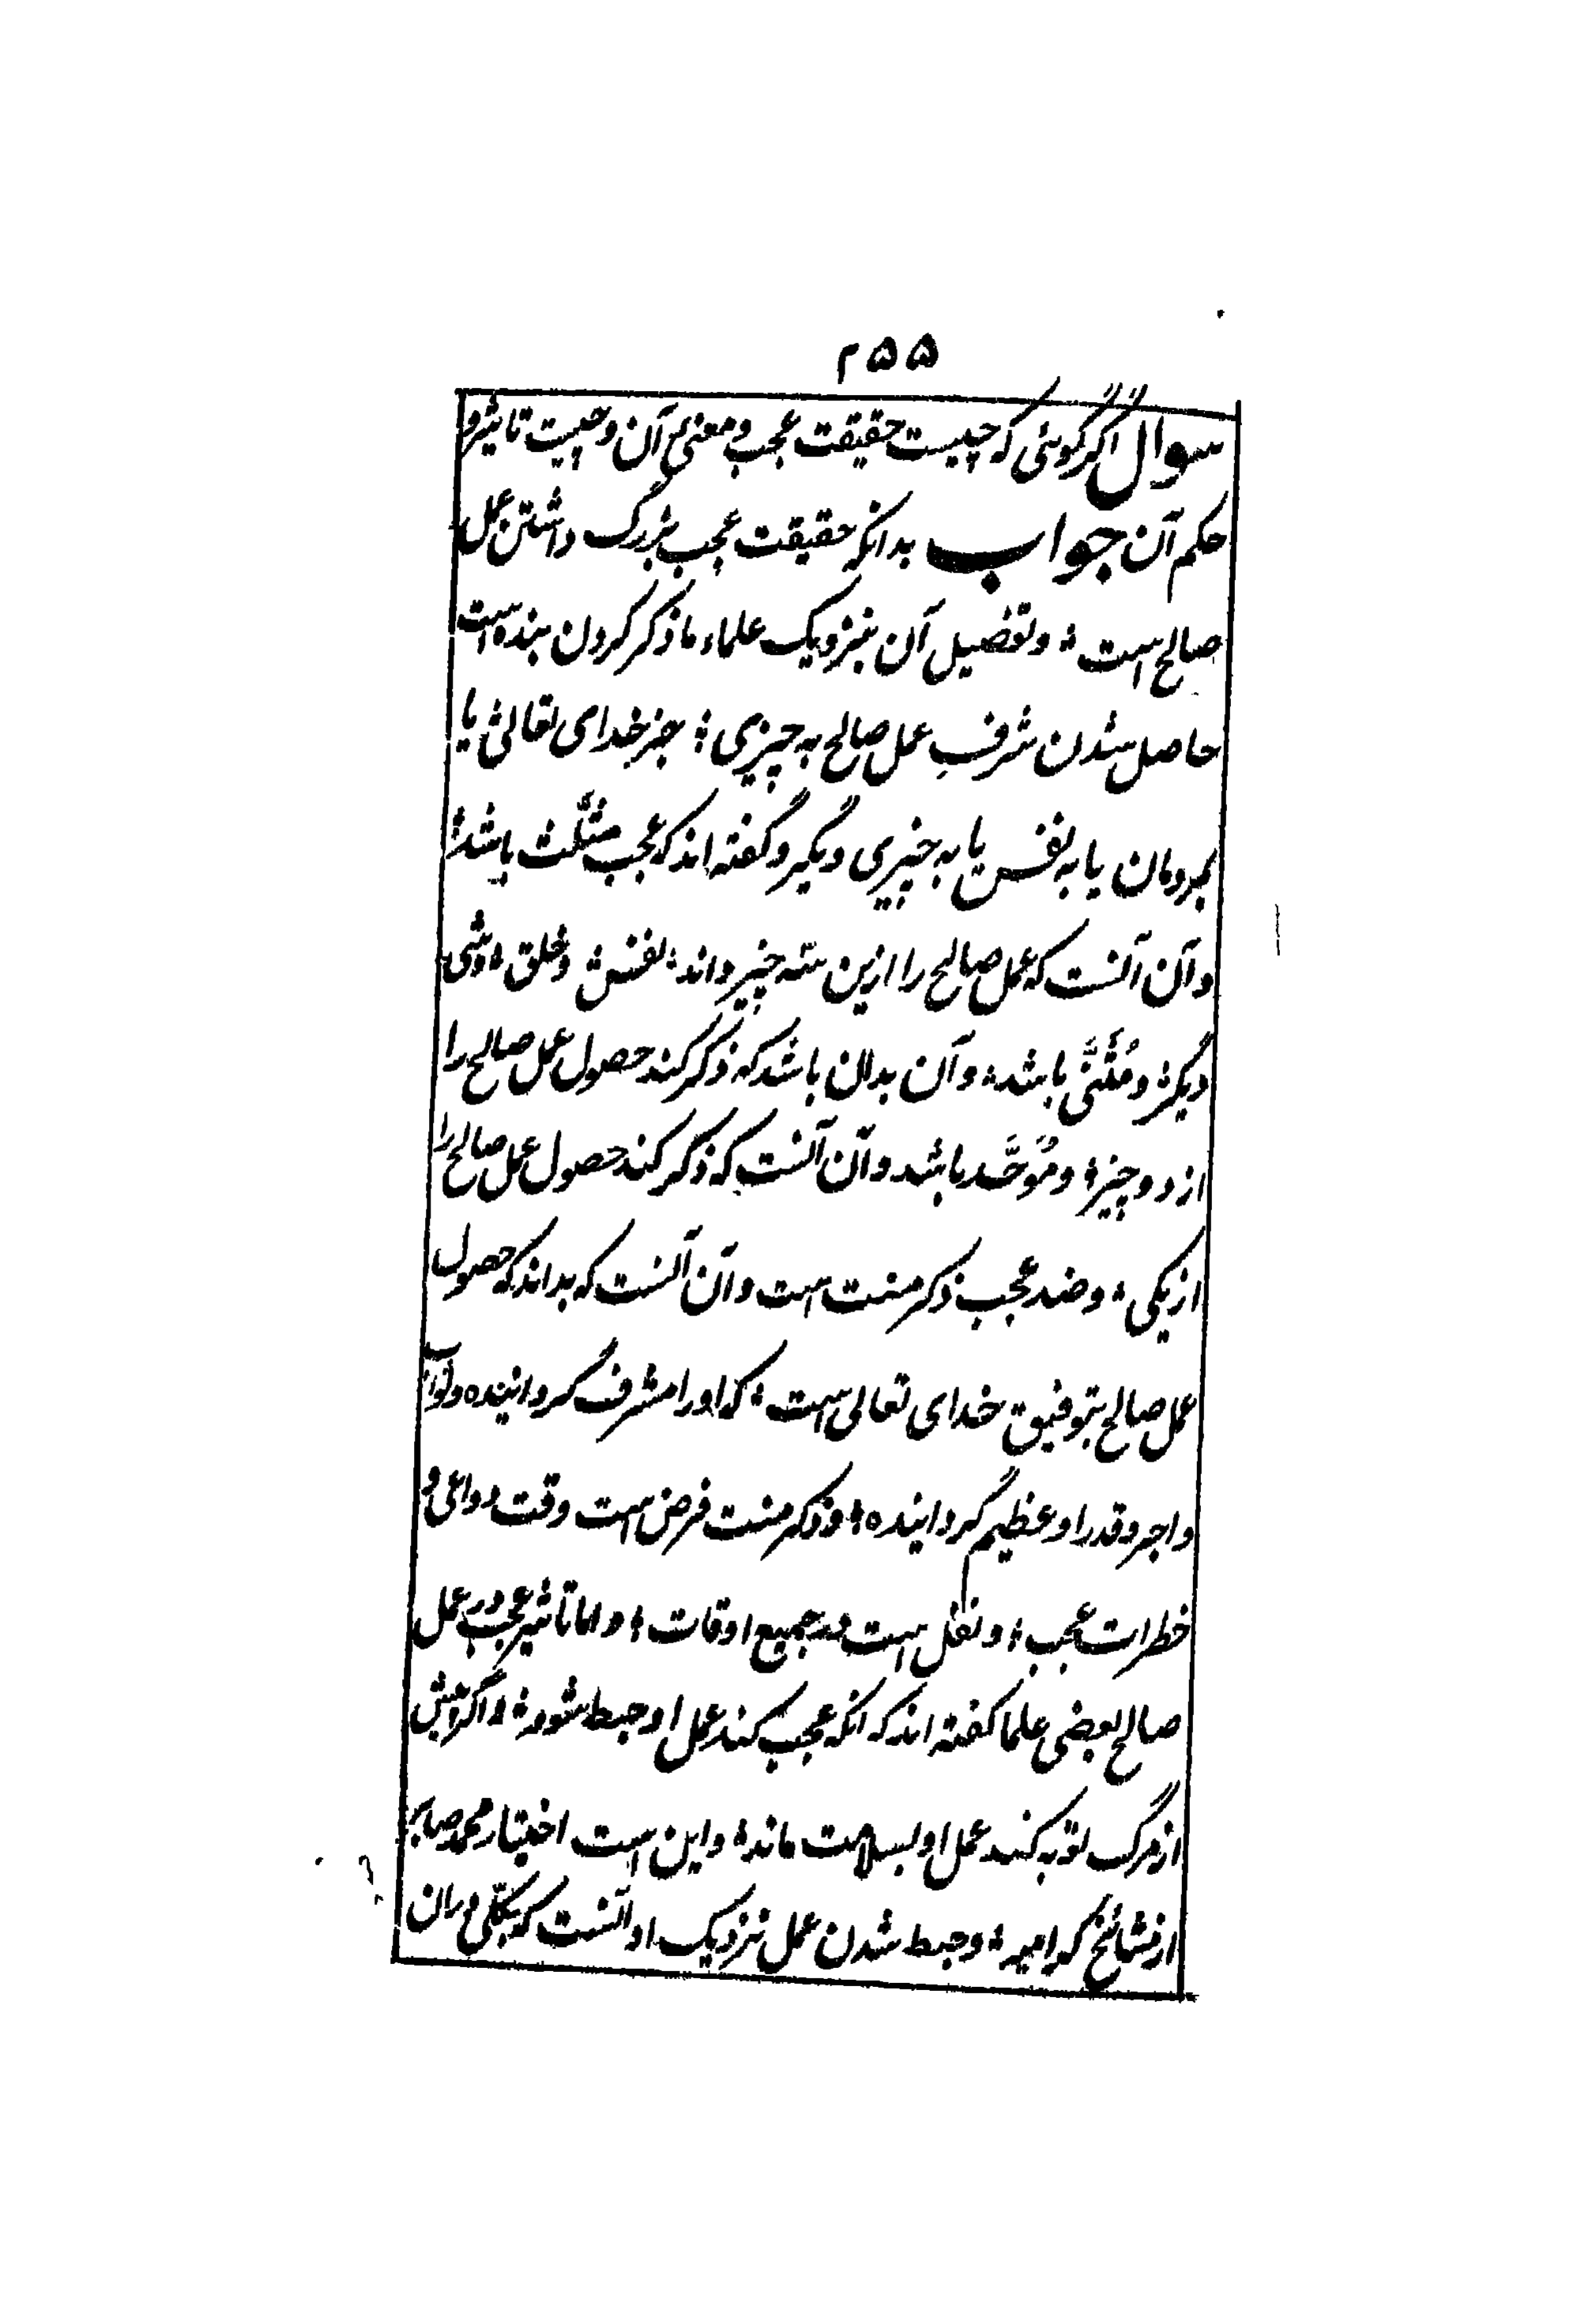 ۲۵۵
سوال اگر گوئی که چیست حقیقت عجب و معنیٔ آن و چیست تاثیر و
حکم آن جواب بدانکه حقیقت عجب بزرگ داشتن عمل
صالح است ؛ و تفضیل آن بنزدیک علماء ما ذکر کردن بنده است
حاصل شدن شرفِ عمل صالح به چیزی ؛ جز خدای تعالیٰ یا
بمردمان یا به نفس یا به چیزی دیگر و گفته اند که عجب مثلّث باشد ؛
و آن آنست که عمل صالح را ازین سه چیز داند ؛ نفس ؛ و خلق ؛ و شی
دیگر ؛ و مُثَنّیٰ باشد ؛ و آن بدان باشد که ذکر کند حصول عمل صالح را
از دو چیز ؛ و مُوَحَّد باشد و آن آنست که ذکر کند حصول عمل صالح را
از یکی ؛ و ضد عجب ذکر منت است و آن آنست که بداند که حصول
عمل صالح بتوفیق خدای تعالی است ؛ که او را مشرف گردانیده و ثواب
و اجر و قدر او عظیم گردانیده ؛ و ذکر منت فرض است وقت دواعی و
خطرات عجب ؛ و نفل است در جمیع اوقات ؛ و اما تاثیر عجب در عمل
صالح بعضی علما گفته اند که انکه عجب کند عمل او حبط شود ؛ و اگر پیش
از مرگ توبه کند عمل او بسلامت ماند ؛ و این است اختیار محمد صابر
از مشائخ کرامیه ؛ و حبط شدن عمل نزدیک او آنست که بکلّی